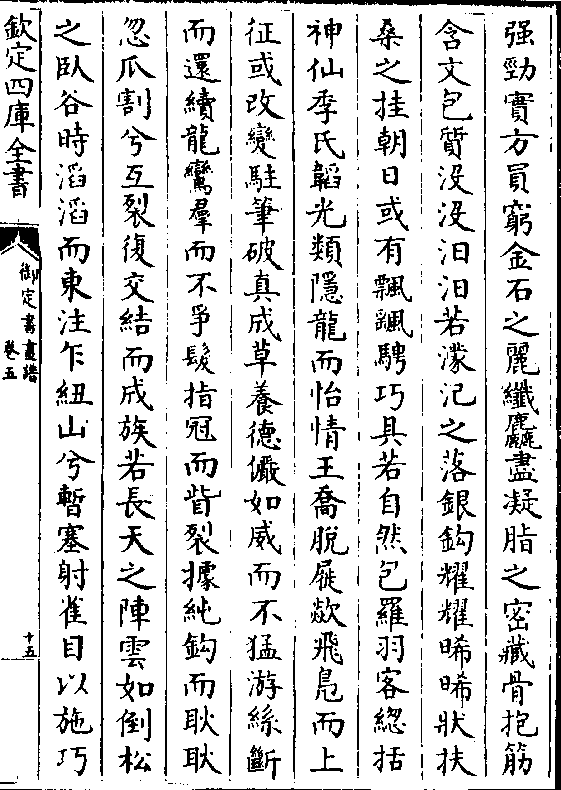 强勁實方員窮金石之麗纖麤盡凝脂之密藏骨抱筋
含文包質没没汨汨若濛汜之落銀鈎耀耀晞晞狀扶
桑之挂朝日或有飄颻騁巧具若自然包羅羽客緫括
神仙季氏韜光類隱龍而怡情王喬脱屣歘飛鳧而上
征或改變駐筆破真成草養德儼如威而不猛游絲斷
而還續龍鸞羣而不爭髮指冠而眥裂據純鈎而耿耿
忽瓜割兮互裂復交結而成族若長天之陣雲如倒松
之臥谷時滔滔而東注乍紐山兮暫塞射雀目以施巧
欽定四庫全書
御定書畫譜
卷五
十五